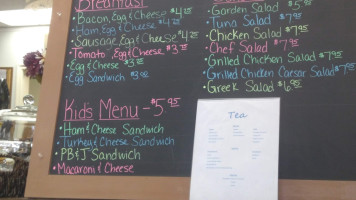 Breakfast
• Bacon, Egg & Cheese $4.25
• Ham, Egg & Cheese $4.25
• Sausage, Egg & Cheese $4.25
• Tomato, Egg & Cheese $3.75
• Egg & Cheese $3.50
• Egg Sandwich $3.00
Kid's Menu - $5.95
• Ham & Cheese Sandwich
• Turkey & Cheese Sandwich
• PB & J Sandwich
• Macaroni & Cheese
• Garden Salad $5.95
• Tuna Salad $7.95
• Chicken Salad $7.95
• Chef Salad $7.95
• Grilled Chicken Salad $7.95
• Grilled Chicken Caesar Salad $7.95
• Greek Salad $6.95
Tea